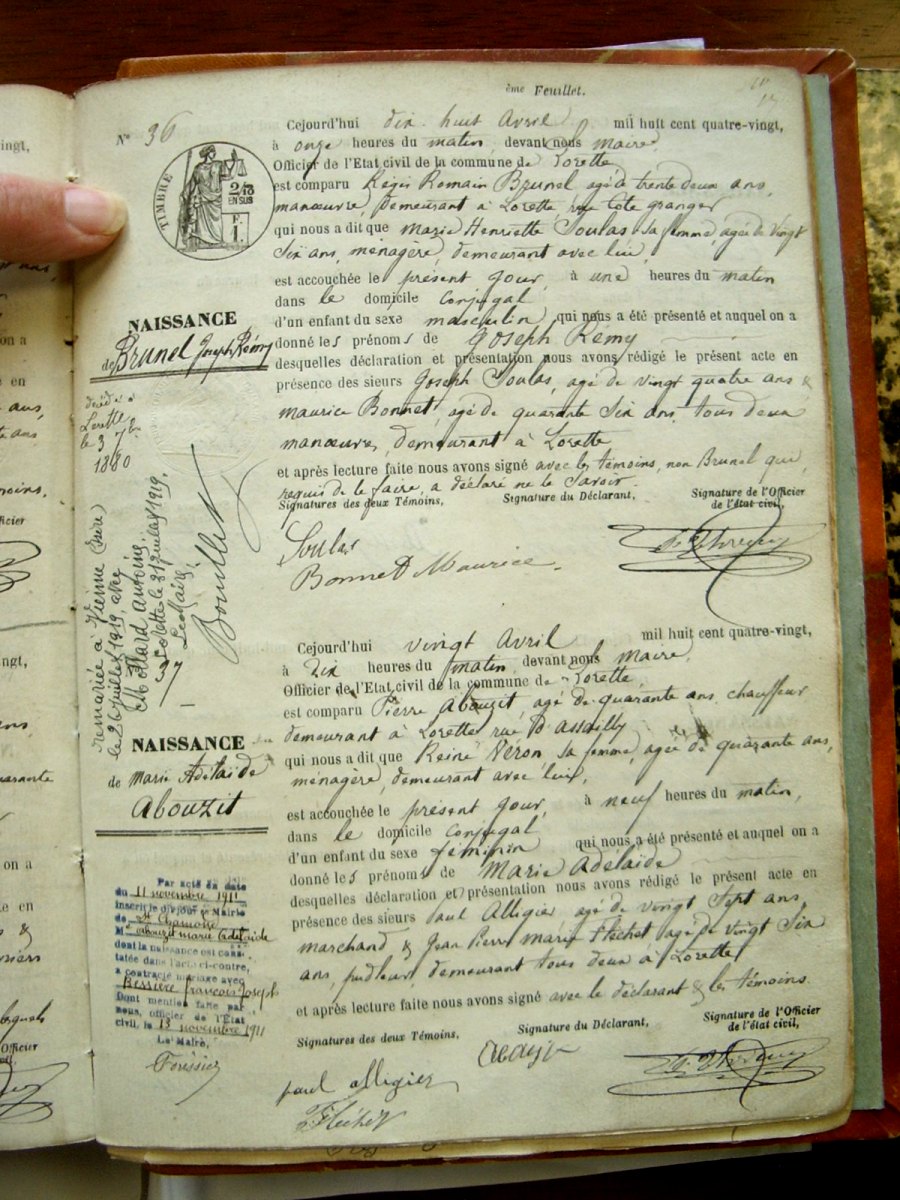 ème Feuillet.
17
N° 36
Cejourd'hui dix huit Avril mil huit cent quatre-vingt,
à onze heures du matin, devant nous Maire,
Officier de l'Etat civil de la commune de Lorette
est comparu Régis Romain Brunel agé de trente deux ans,
manœuvre, demeurant à Lorette, rue Côte granger
qui nous a dit que Marie Henriette Soulas sa femme, agée de vingt
Six ans, ménagère, demeurant avec lui,
est accouchée le présent jour, à une heures du matin
dans le domicile conjugal
d'un enfant du sexe masculin, qui nous a été présenté et auquel on a
donné les prénoms de Joseph Rémy
desquelles déclaration et présentation nous avons rédigé le présent acte en
présence des sieurs Joseph Soulas, agé de vingt quatre ans &
maurice Bonnet, agé de quarante Six ans, tous deux
manœuvres, demeurant à Lorette
et après lecture faite nous avons signé avec les témoins, non Brunel qui,
requis de le faire, a déclaré ne le Savoir.
Signatures des deux Témoins, Signature du Déclarant, Signature de l'Officier
de l'état civil,
Soulas
Bonnet Maurice
TIMBRE
2/10
EN SUS
F.
1.
NAISSANCE
de Brunel Joseph Rémy
décédé à
Lorette
le 3 7bre
1880
remariée à Vienne (Isère)
le 26 juillet 1919, avec
Mollard Antoine.
Lorette le 31 juillet 1919,
Le Maire,
37
Cejourd'hui vingt Avril mil huit cent quatre-vingt,
à Dix heures du matin, devant nous Maire,
Officier de l'Etat civil de la commune de Lorette,
est comparu Pierre Abouzit, agé de quarante ans, chauffeur
demeurant à Lorette rue D'assailly
qui nous a dit que Reine Néron, sa femme, agée de quarante ans,
ménagère, demeurant avec lui,
est accouchée le présent jour, à neuf heures du matin,
dans le domicile conjugal
d'un enfant du sexe féminin qui nous a été présenté et auquel on a
donné les prénoms de Marie Adelaïde
desquelles déclaration et présentation nous avons rédigé le présent acte en
présence des sieurs Paul Alligier agé de vingt Sept ans,
marchand & Jean Pierre Marie Fléchet, agé de vingt Six
ans, pudleur, demeurant tous deux à Lorette
et après lecture faite nous avons signé avec le déclarant & les témoins.
Signatures des deux Témoins, Signature du Déclarant, Signature de l'Officier
de l'état civil,
paul alligier
Fléchet
NAISSANCE
de Marie Adelaïde
Abouzit
Par acte en date
du 11 novembre 1911
inscrit le dit jour à la Mairie
de St Chamond
Mle abouzit marie adelaide
dont la naissance est cons-
tatée dans l'acte ci-contre,
a contracté mariage avec
Bessière françois Joseph
Dont mention faite par
nous, officier de l'Etat
civil, le 13 novembre 1911
Le Maire,